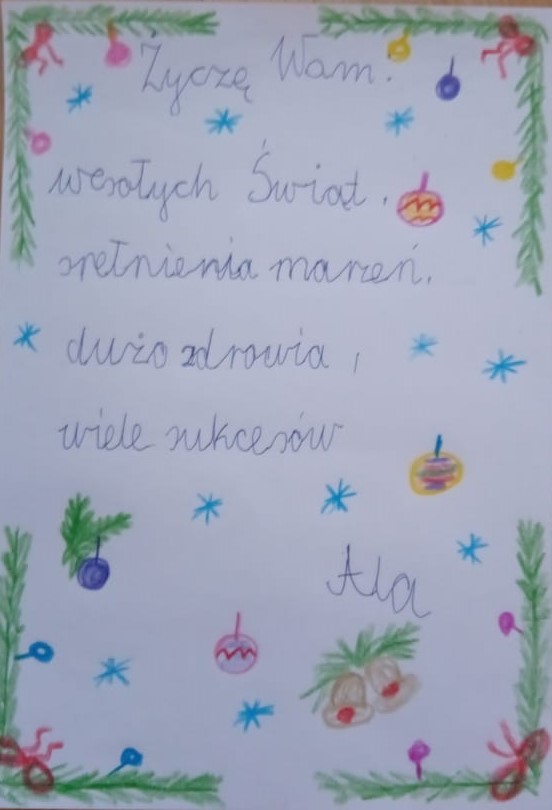 Życzę Wam:
wesołych Świąt,
spełnienia marzeń,
dużo zdrowia,
wiele sukcesów
Ala